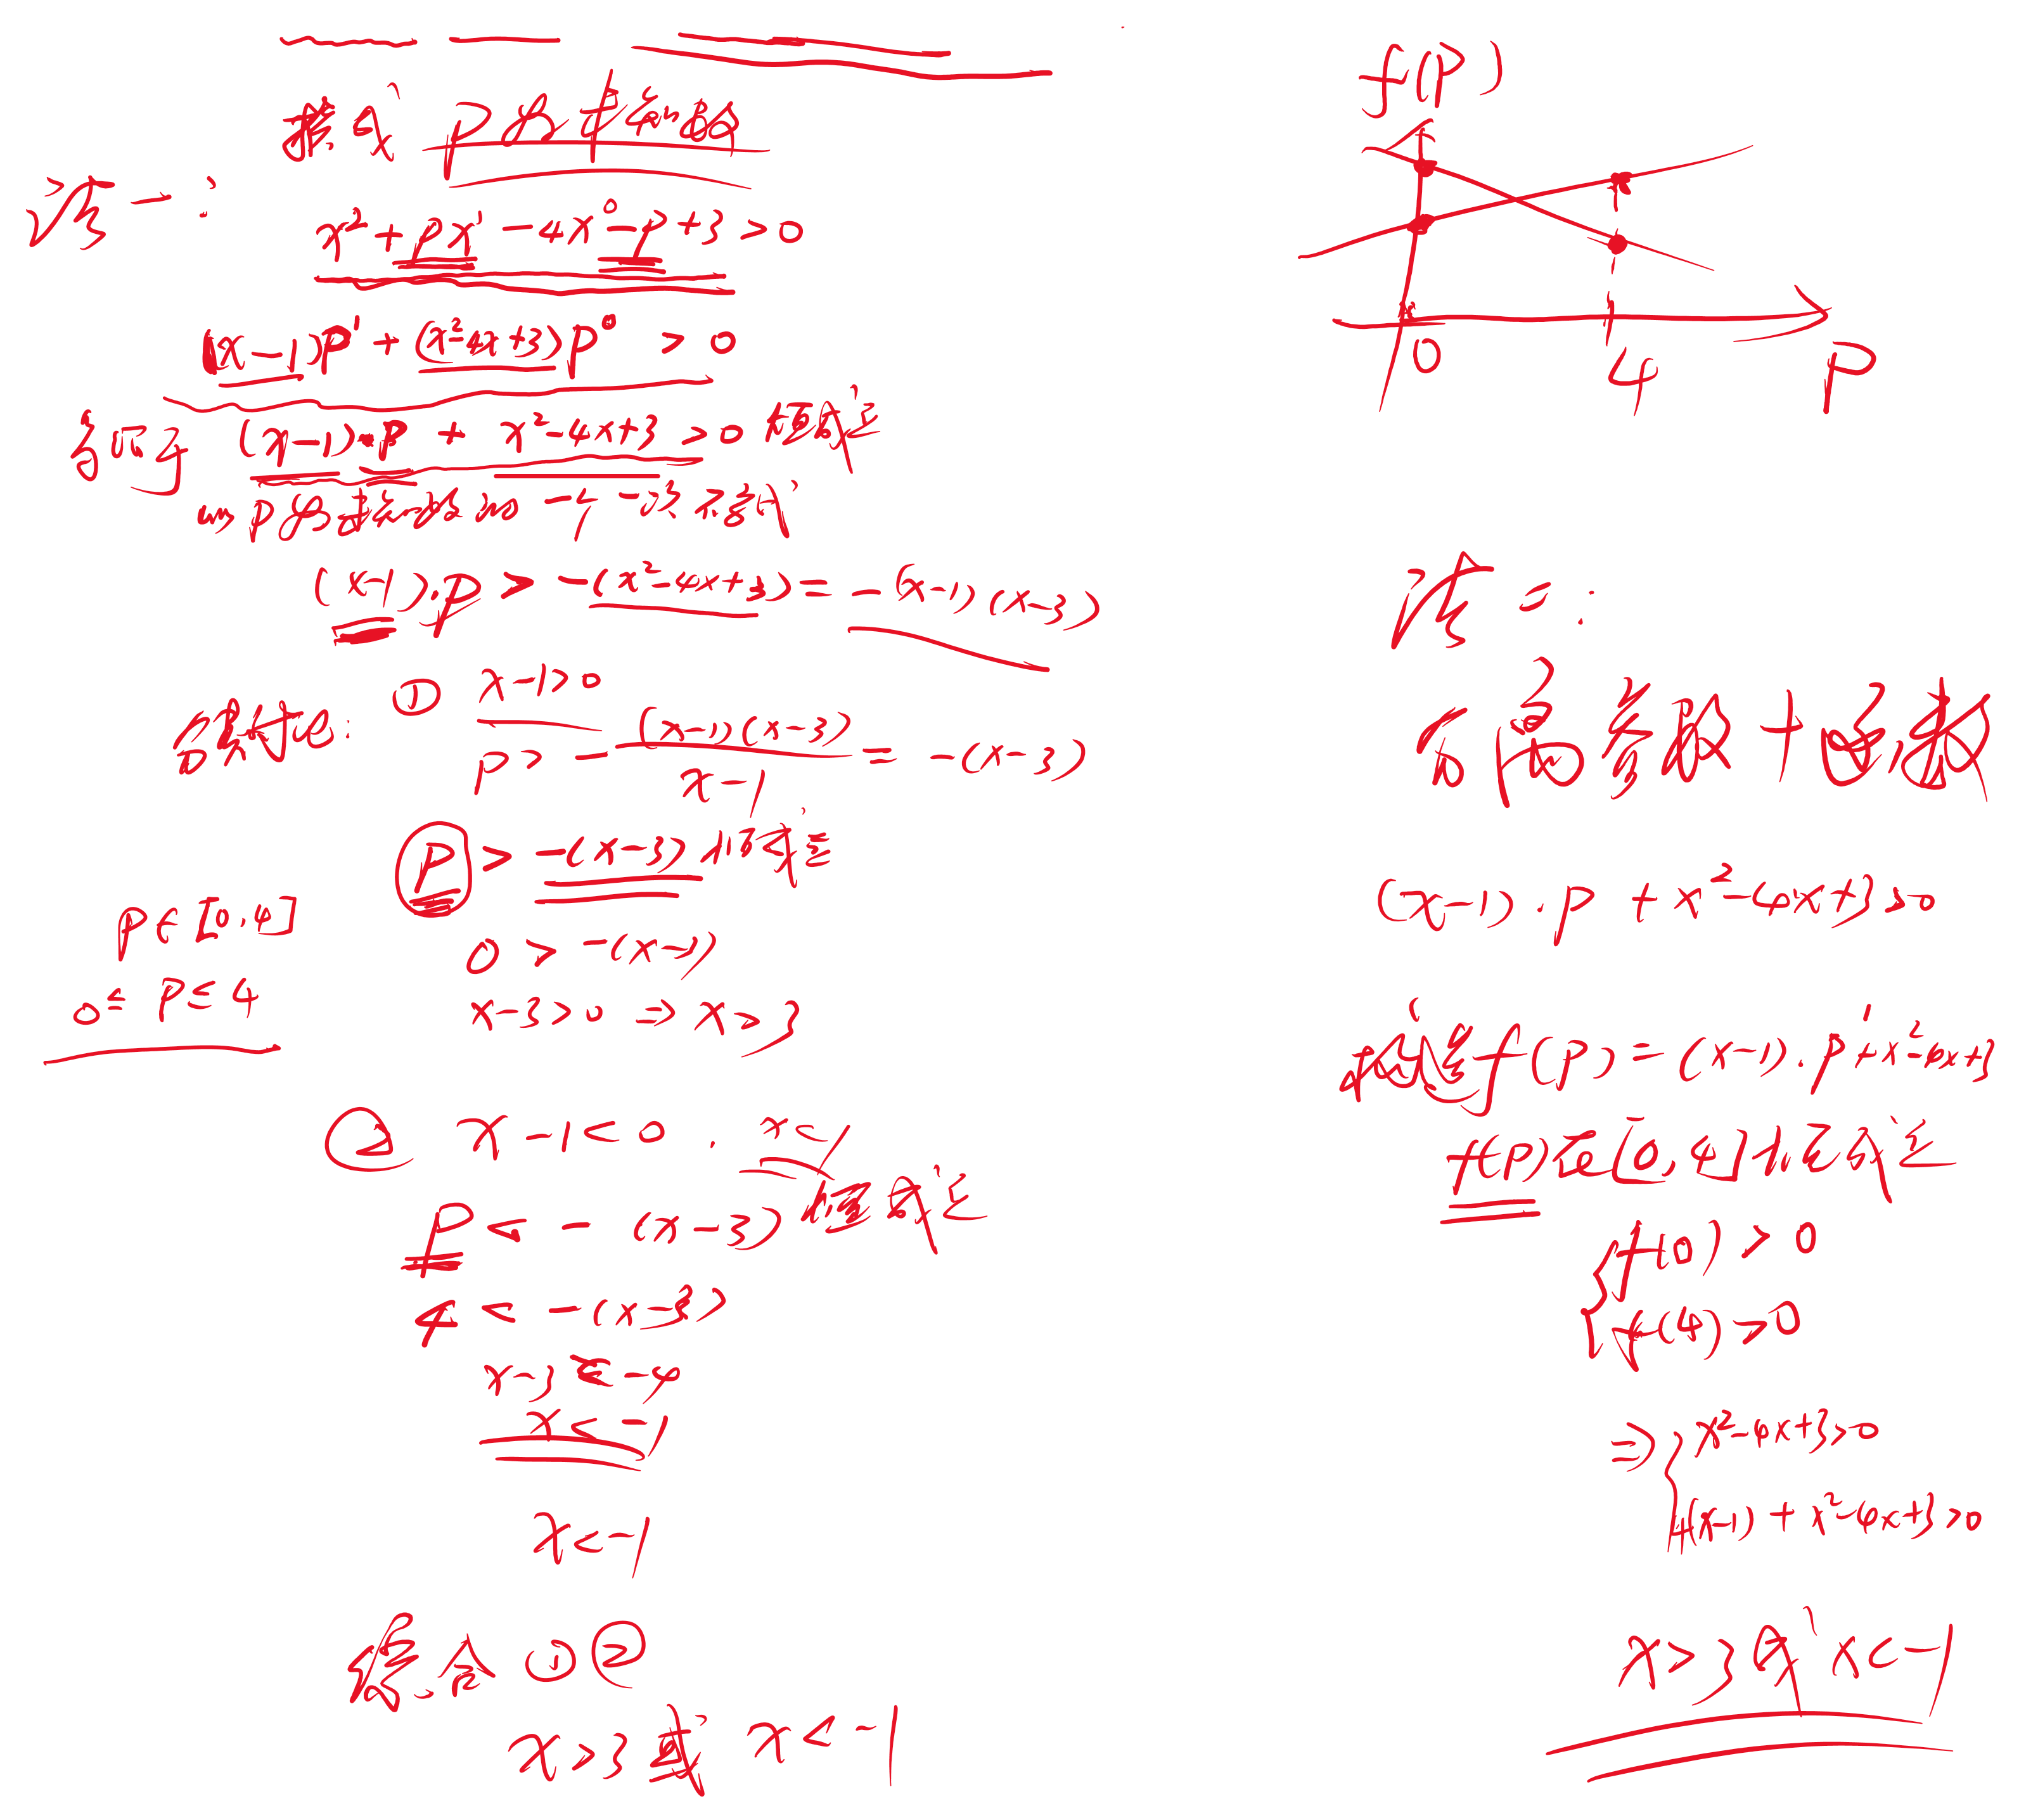 换成 P为未知数
法一:
x²+px¹-4x⁰-p+3>0
(x-1)p¹+(x²-4x+3)p⁰>0
等同于 (x-1)·p+x²-4x+3>0 恒成立
以P为未知数的一个一次不等式
(x-1)·p>-(x²-4x+3)=-(x-1)(x-3)
分类讨论: ① x-1>0
p>-(x-1)(x-3)/(x-1)=-(x-3)
p>-(x-3)恒成立
p∈[0,4]
0≤p≤4
0>-(x-3)
x-3>0⇒x>3
② x-1<0. x<1
p<-(x-3)恒成立
4<-(x-3)
x-3<-4
x<-1
x<-1
综合①②
x>3或 x<-1
f(p)
0 4 p
法二:
分离参数+函数
(x-1)·p+x²-4x+3>0
f(p)=(x-1)·p¹+x²-4x+3
f(p)在[0,4]恒成立
f(0)>0
f(4)>0
⇒ x²-4x+3>0
4(x-1)+x²-4x+3>0
x>3或x<-1